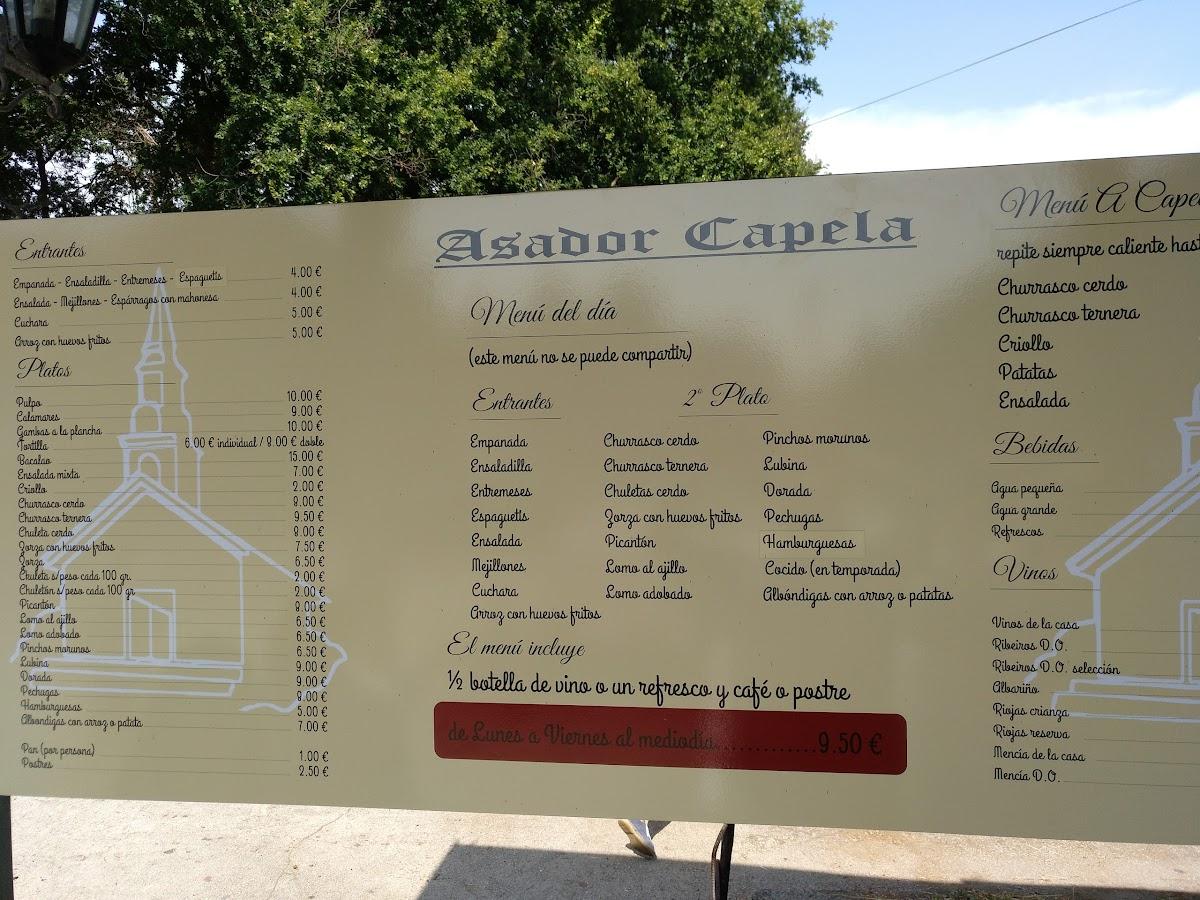 Entrantes
Empanada - Ensaladilla - Entremeses - Espaguetis 4.00 €
Ensalada - Mejillones - Espárragos con mahonesa 4.00 €
Cuchara 5.00 €
Arroz con huevos fritos 5.00 €
Platos
Pulpo 10.00 €
Calamares 9.00 €
Gambas a la plancha 10.00 €
Tortilla 6.00 € individual / 8.00 € doble
Bacalao 15.00 €
Ensalada mixta 7.00 €
Criollo 2.00 €
Churrasco cerdo 8.00 €
Churrasco ternera 9.50 €
Chuleta cerdo 8.00 €
Zorza con huevos fritos 7.50 €
Zorza 6.50 €
Chuleta s/peso cada 100 gr. 2.00 €
Chuletón s/peso cada 100 gr 2.00 €
Picantón 8.00 €
Lomo al ajillo 6.50 €
Lomo adobado 6.50 €
Pinchos morunos 6.50 €
Lubina 9.00 €
Dorada 9.00 €
Pechugas 8.00 €
Hamburguesas 5.00 €
Alboondigas con arroz o patata 7.00 €
Pan (por persona) 1.00 €
Postres 2.50 €
Asador Capela
Menú del día
(este menú no se puede compartir)
Entrantes
Empanada
Ensaladilla
Entremeses
Espaguetis
Ensalada
Mejillones
Cuchara
Arroz con huevos fritos
2º Plato
Churrasco cerdo
Churrasco ternera
Chuletas cerdo
Zorza con huevos fritos
Picantón
Lomo al ajillo
Lomo adobado
Pinchos morunos
Lubina
Dorada
Pechugas
Hamburguesas
Cocido (en temporada)
Alboóndigas con arroz o patatas
El menú incluye
½ botella de vino o un refresco y café o postre
de Lunes a Viernes al mediodía ............9.50 €
Menú A Cape
repite siempre caliente hast
Churrasco cerdo
Churrasco ternera
Criollo
Patatas
Ensalada
Bebidas
Agua pequeña
Agua grande
Refrescos
Vinos
Vinos de la casa
Ribeiros D.O.
Ribeiros D.O. selección
Albariño
Riojas crianza
Riojas reserva
Mencía de la casa
Mencía D.O.